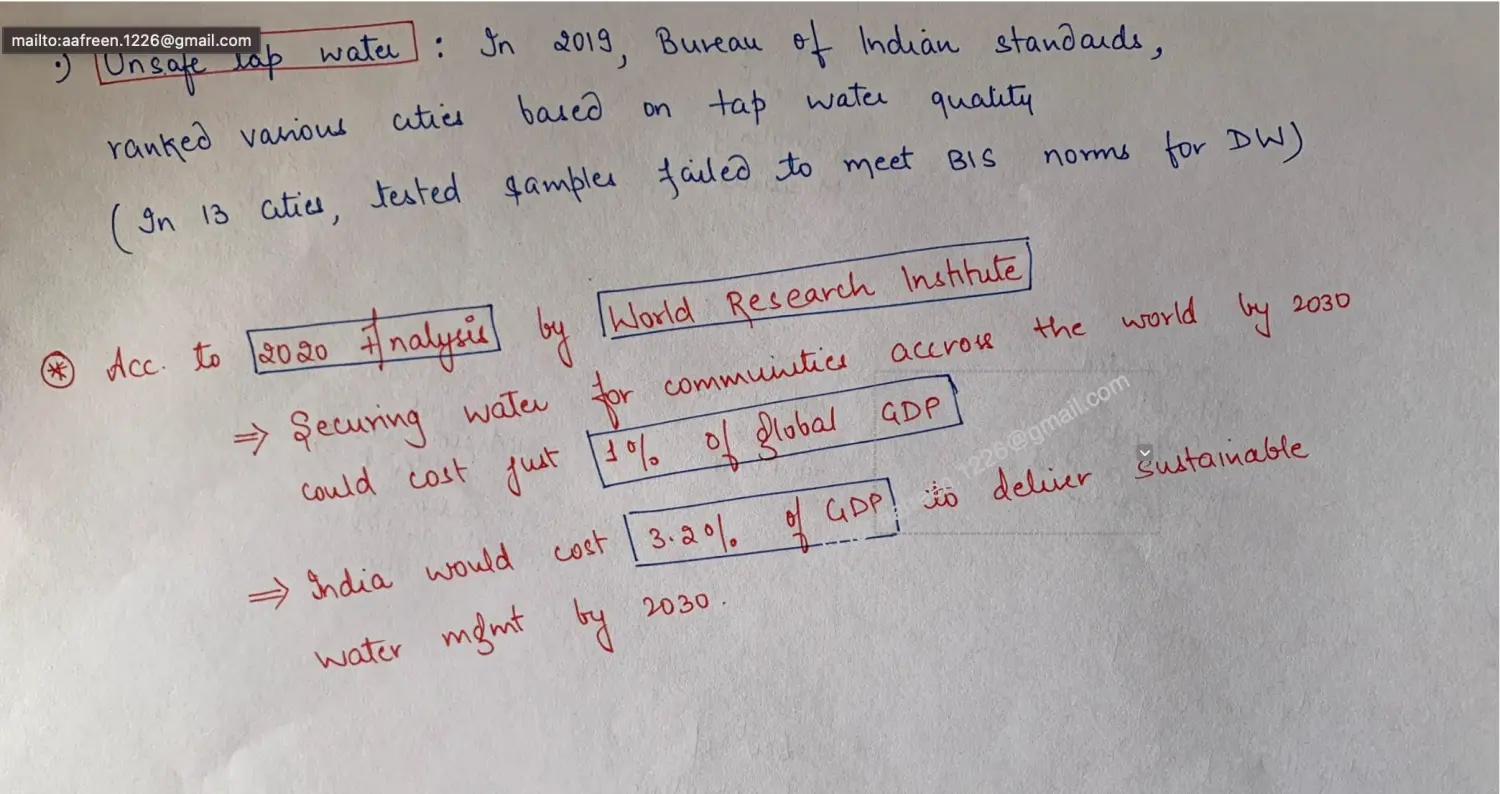 mailto:aafreen.1226@gmail.com
:) Unsafe tap water : In 2019, Bureau of Indian standards,
ranked various cities based on tap water quality
(In 13 cities, tested samples failed to meet BIS norms for DW)
* Acc. to 2020 Analysis by World Research Institute
⇒ Securing water for communities accross the world by 2030
could cost just 1% of global GDP
1226@gmail.com
⇒ India would cost 3.2% of GDP to deliver sustainable
water mgmt by 2030.